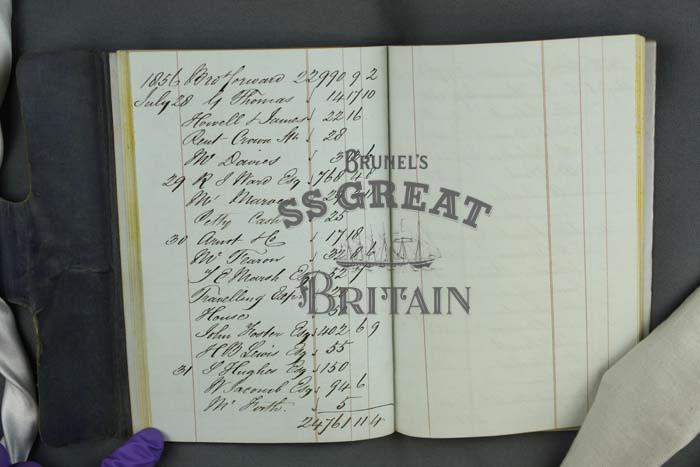 1856 Bro⁠t forward 22990 9 2
July 28 G Thomas 14 17 10
Howell & James 22 16
Rent Crown 28
Mr Davies
29 R J Ward Esq 768 4 8
Mr
Petty Cash 25
30 Arnot & Co 17 18
Mr Fearon 8 6
T E Marsh Esq 52 7
Travelling Exps
House
John Foster Esq 402 6 9
H B Lewis Esq 55
31 S Hughes Esq 150
W Jacomb Esq 94 6
Mr Forth 5
24761 11 4
BRUNEL'S
SS GREAT
BRITAIN